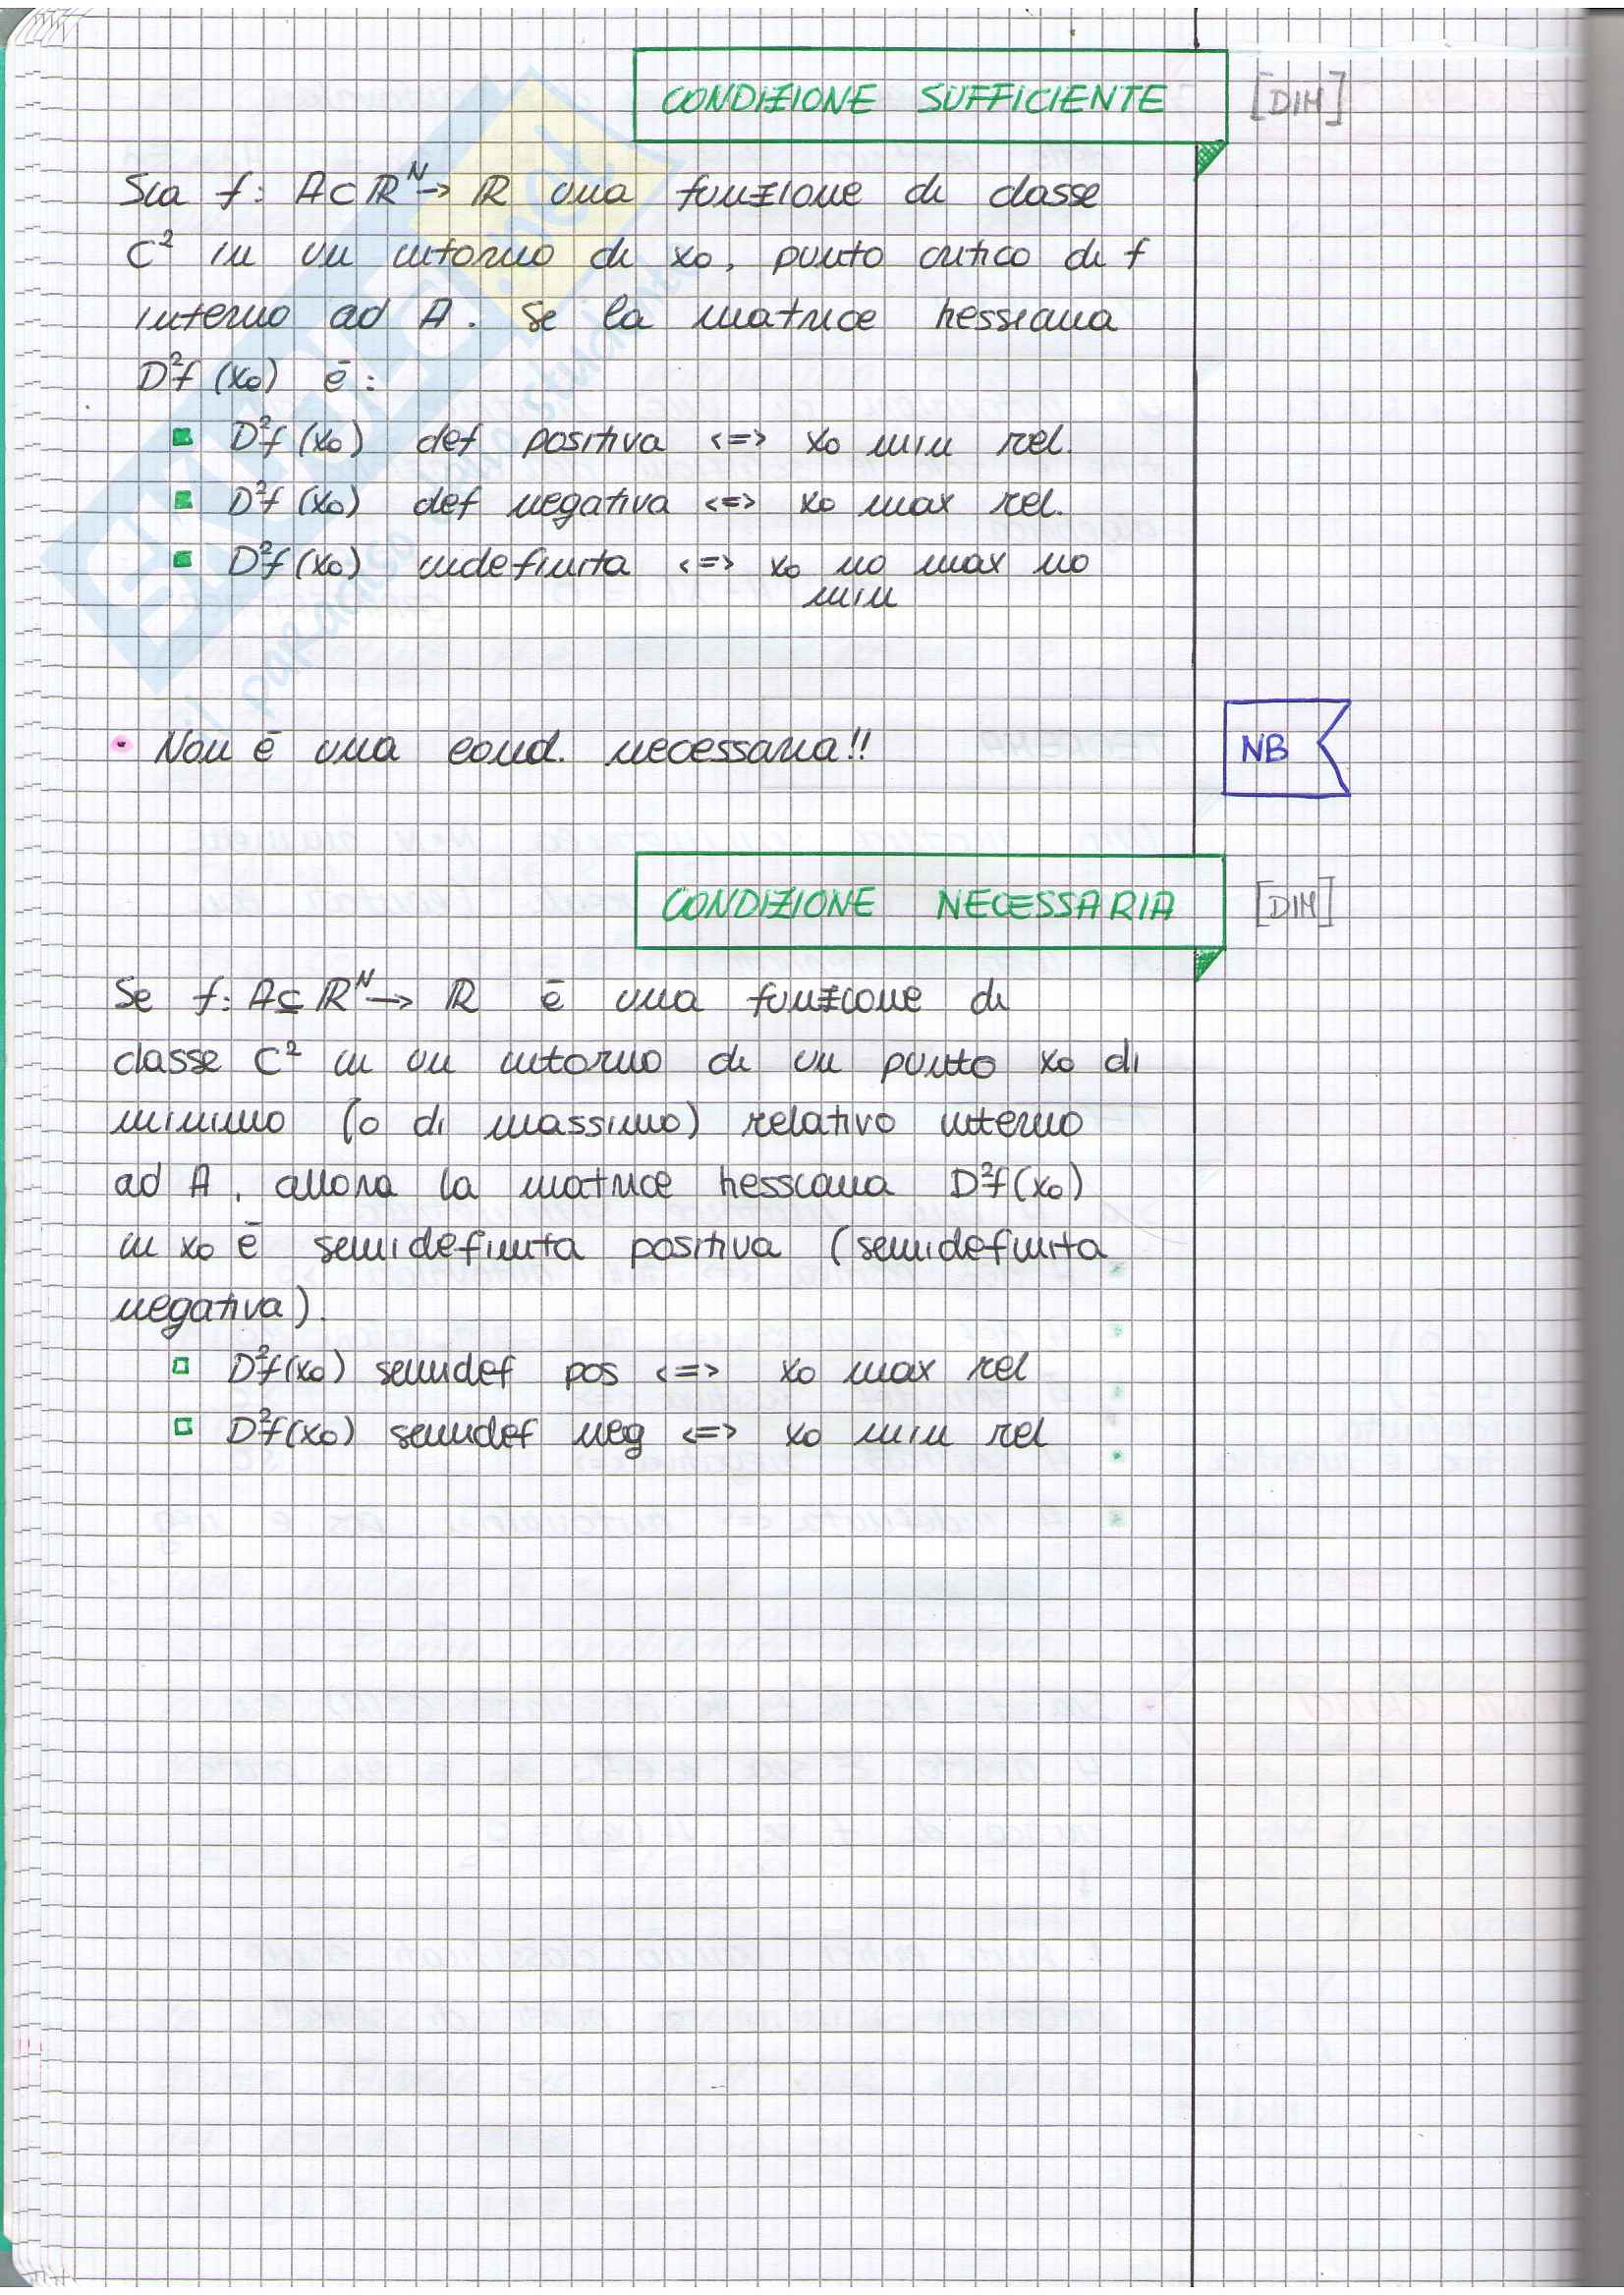 CONDIZIONE SUFFICIENTE [DIM]
Sia f: A⊂ℝᴺ→ ℝ una funzione di classe
C² in un intorno di x₀, punto critico di f
interno ad A. Se la matrice hessiana
D²f(x₀) ē:
D²f(x₀) def positiva <=> x₀ min rel.
D²f(x₀) def negativa <=> x₀ max rel.
D²f(x₀) indefinita <=> x₀ no max no
min
• Non ē una cond. necessaria!! NB
CONDIZIONE NECESSARIA [DIM]
Se f: A⊆ℝᴺ→ ℝ ē una funzione di
classe C² in un intorno di un punto x₀ di
minimo (o di massimo) relativo interno
ad A, allora la matrice hessiana D²f(x₀)
in x₀ ē semidefinita positiva (semidefinita
negativa).
D²f(x₀) semidef pos <=> x₀ max rel
D²f(x₀) semidef neg <=> x₀ min rel